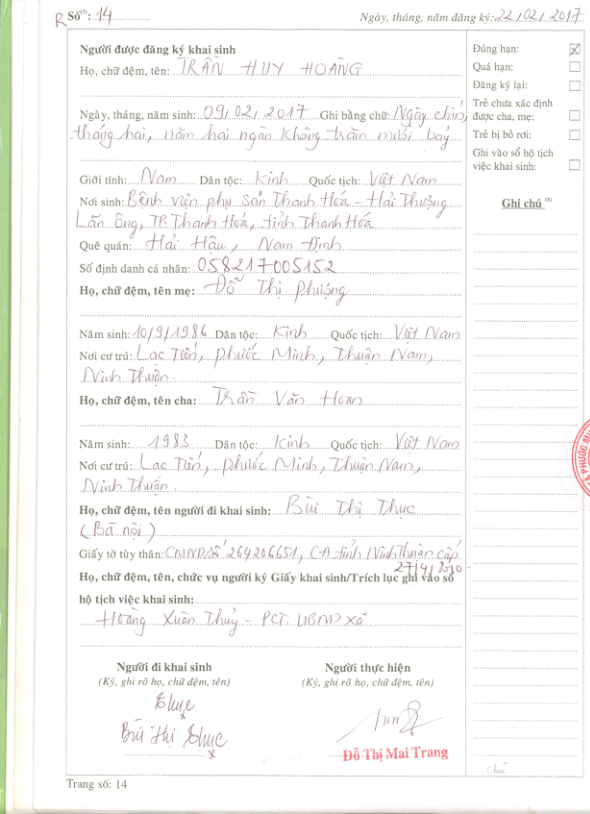 R Số⁽⁵⁾: 14 Ngày, tháng, năm đăng ký: 22/02/2017
Người được đăng ký khai sinh
Họ, chữ đệm, tên: TRẦN HUY HOÀNG
Ngày, tháng, năm sinh: 09/02/2017 Ghi bằng chữ: Ngày chín,
tháng hai, năm hai ngàn không trăm mười bảy
Giới tính: Nam Dân tộc: Kinh Quốc tịch: Việt Nam
Nơi sinh: Bệnh viện phụ sản Thanh Hoá - Hải Thượng
Lãn Ông, TP. Thanh Hoá, tỉnh Thanh Hoá
Quê quán: Hải Hậu, Nam Định
Số định danh cá nhân: 058217005152
Họ, chữ đệm, tên mẹ: Đỗ Thị Phượng
Năm sinh: 10/9/1986 Dân tộc: Kinh Quốc tịch: Việt Nam
Nơi cư trú: Lạc Tiến, Phước Minh, Thuận Nam,
Ninh Thuận.
Họ, chữ đệm, tên cha: Trần Văn Hoan
Năm sinh: 1983 Dân tộc: Kinh Quốc tịch: Việt Nam
Nơi cư trú: Lạc Tiến, Phước Minh, Thuận Nam,
Ninh Thuận.
Họ, chữ đệm, tên người đi khai sinh: Bùi Thị Thục
(Bà nội)
Giấy tờ tùy thân: CMND số 264206651, CA tỉnh Ninh Thuận cấp
27/4/2010
Họ, chữ đệm, tên, chức vụ người ký Giấy khai sinh/Trích lục ghi vào sổ
hộ tịch việc khai sinh:
Hoàng Xuân Thuỷ - PCT. UBND xã
Người đi khai sinh
(Ký, ghi rõ họ, chữ đệm, tên)
Thục
Bùi Thị Thục
Người thực hiện
(Ký, ghi rõ họ, chữ đệm, tên)
Đỗ Thị Mai Trang
Trang số: 14
Đúng hạn: X
Quá hạn:
Đăng ký lại:
Trẻ chưa xác định
được cha, mẹ:
Trẻ bị bỏ rơi:
Ghi vào sổ hộ tịch
việc khai sinh:
Ghi chú ⁽⁶⁾